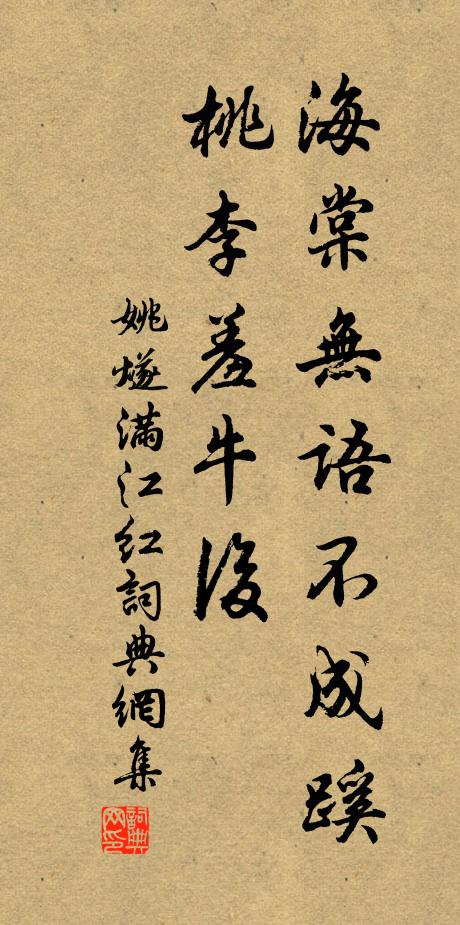 海棠無語不成蹊
桃李羞牛後
姚燧滿江紅詞典網集
詞典网印